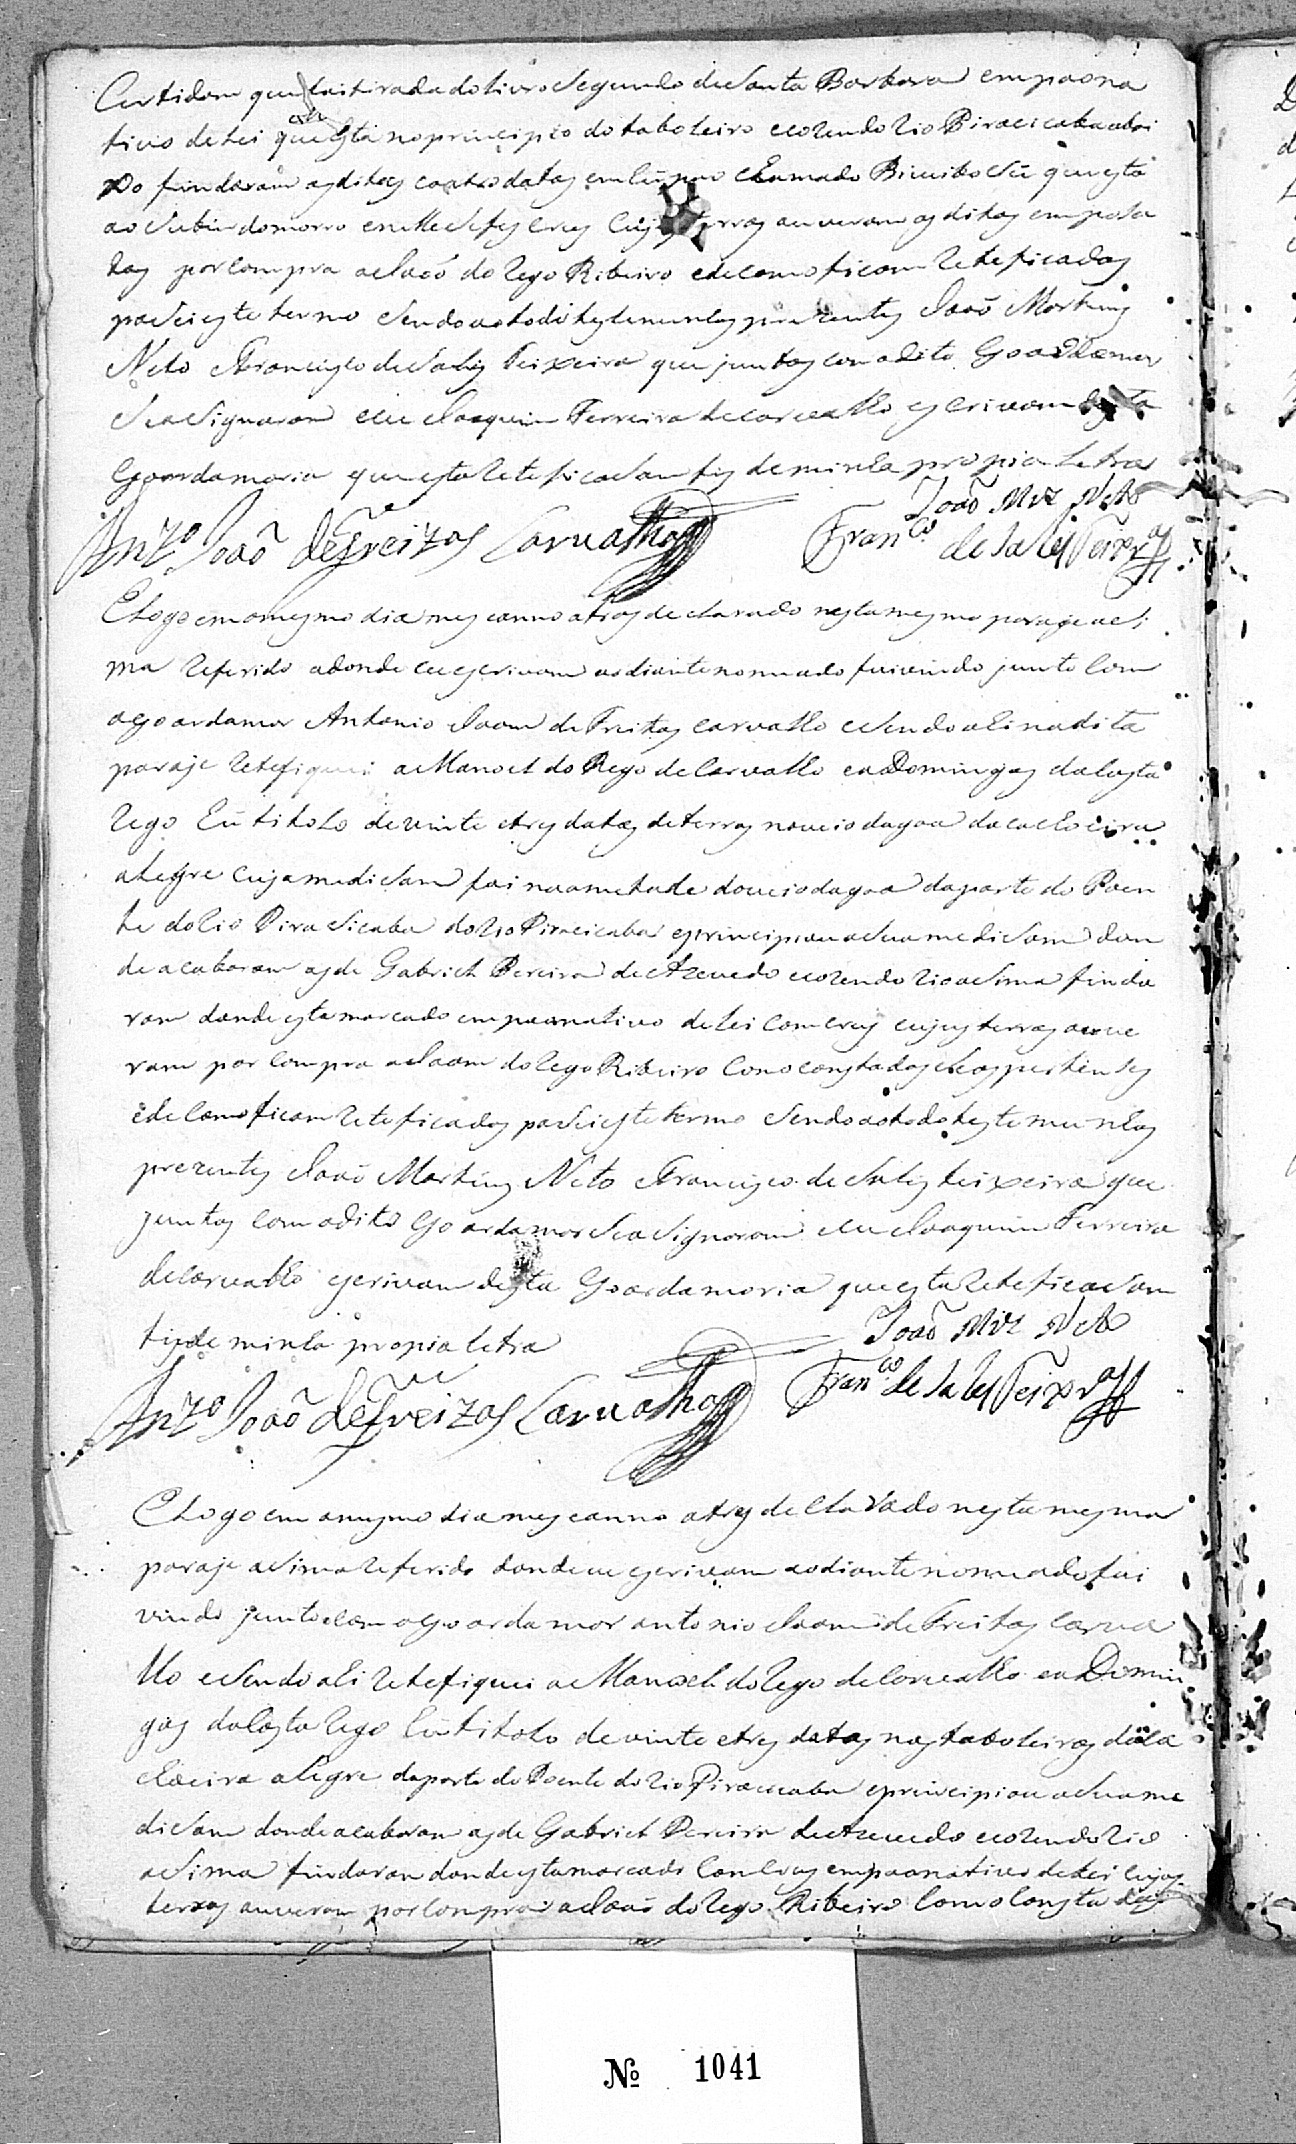 Certidam que foi tirada do livro segundo de Santa Barbara em paona
tivo de lei que esta no principio do taboleiro corendo rio Piracicaba abai
xo findaram as ditas coatro datas em hũ pao chamado que esta
ao subir do morro cujas terras auveram as ditas empasa
das por compra a Joaõ do Rego Ribeiro e de como ficam reteficadas
pasei este termo sendo a todo testemunhas prezentes Joaõ Martins
Neto Francisco de Sales Teixeira que juntos com o dito Goardamor
se asignaram e eu Joaquim Ferreira de Carvalho escrivam desta
Goardamoria que esta reteficasam fis de minha propia letra
João Miz Neto
Anto João de Freitas Carvalho Franco de Sales Teixra
E logo em o mesmo dia mes e anno atras declarado nesta mesma paraje asi
ma referido adonde eu escrivam ao diante nomeado fui vindo junto com
o goardamor Antonio Joam de Freitas Carvalho e sendo ali na dita
paraje retefiquei a Manoel do Rego de Carvalho e a Domingas da Costa
Rego hũ titolo de vinte e tres datas de terras no veio dagoa da cachoeira
alegre cuja medisam foi na ametade do veio dagoa da parte do Poen
te do rio Pirasicaba do rio Piracicaba e principiou a sua medisam don
de acabaram as de Gabriel Pereira de Azevedo e corendo rio asima finda
ram donde esta marcado em pao nativo de lei com crus cujas terras auve
ram por compra a Joam do Rego Ribeiro como consta das
e de como ficam reteficadas pasei este termo sendo a todo testemunhas
prezentes Joaõ Martins Neto Francisco de Sales teixeira que
juntos com o dito Goardamor se asignaram e eu Joaquim Ferreira
de Carvalho escrivam desta Goardamoria que esta reteficasam
fis de minha propia letra
João Miz Neto
Anto João de Freitas Carvalho Franco de Sales Teixra
E logo em o mesmo dia mes e anno atras declarado nesta mesma
paraje asima referido donde eu escrivam ao diante nomeado fui
vindo junto com o goardamor antonio Joam de Freitas carva
lho e sendo ali retefiquei a Manoel do Rego de Carvalho e a Domin
gas da Costa Rego hũ titolo de vinte e tres datas nos taboleiros da ca
choeira alegre da parte do Poente do rio Piracicaba e principiou a sua me
disam donde acabaram as de Gabriel Pereira de Azevedo e corendo rio
asima findaram donde esta marcado com crus em pao nativo de lei cujas
terras auveram por compra a Joaõ do Rego Ribeiro como consta das
№ 1041